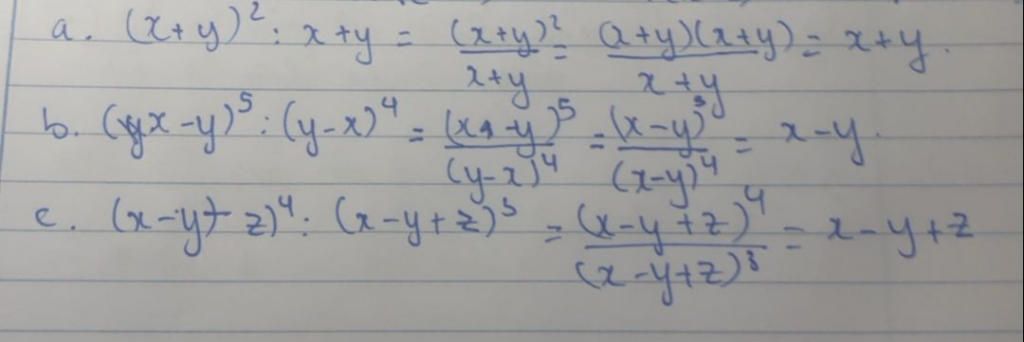 a. (x+y)² : x+y = (x+y)²/x+y = (x+y)(x+y)/x+y = x+y.
b. (x-y)⁵ : (y-x)⁴ = (x-y)⁵/(y-x)⁴ = (x-y)⁵/(x-y)⁴ = x-y.
c. (x-y+z)⁴ : (x-y+z)³ = (x-y+z)⁴/(x-y+z)³ = x-y+z